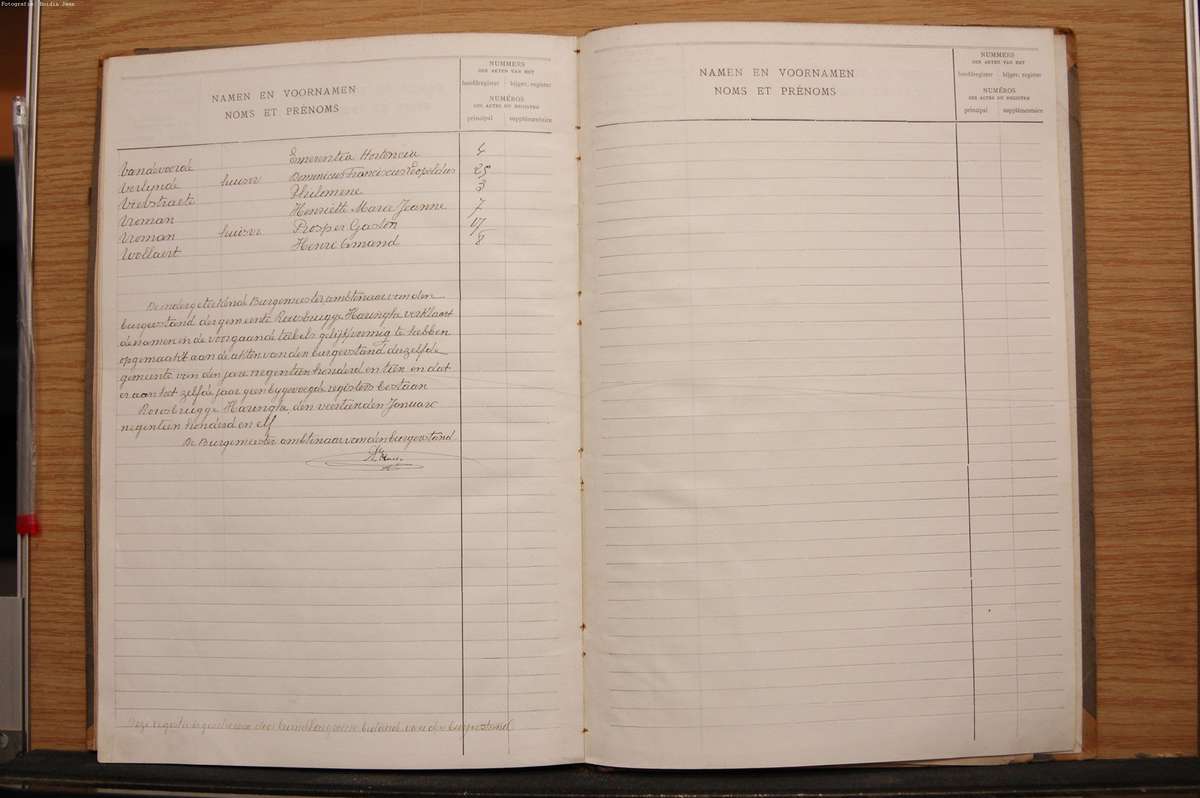 Fotografie: Boidin Jean
NAMEN EN VOORNAMEN
NOMS ET PRÉNOMS
NUMMERS
DER AKTEN VAN HET
hoofdregister bijgev. register
NUMÉROS
DES ACTES DU REGISTRE
principal supplémentaire
Vandevoorde Emerentia Hortencia 4
Verlynde huisvr Dominicus Franciscus Leopoldus 25
Viebstraete Philomene 3
Vroman Henriette Maria Jeanne 7
Vroman huisvr Prosper Gaston 17
Wollaert Henri Comand 8
De ondergeteekende Burgemeester ambtenaar van den
burgerstand der gemeente Rousbrugge Haringhe verklaart
de namen en de voorgaande tabels gelijkvormig te hebben
opgemaakt aan de akten van den burgerstand derzelfde
gemeente van den jare negentien honderd en tien en dat
er aan het zelfde jaar geen bygevoegde registers bestaan
Rousbrugge Haringhe, den veertienden Januari
negentien honderd en elf
De Burgemeester ambtenaar van den burgerstand
NAMEN EN VOORNAMEN
NOMS ET PRÉNOMS
NUMMERS
DER AKTEN VAN HET
hoofdregister bijgev. register
NUMÉROS
DES ACTES DU REGISTRE
principal supplémentaire